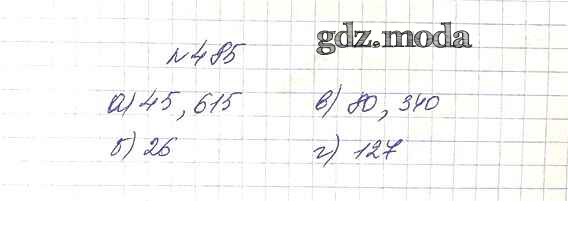 gdz.moda
№485
а) 45, 615 в) 80, 340
б) 26 г) 127